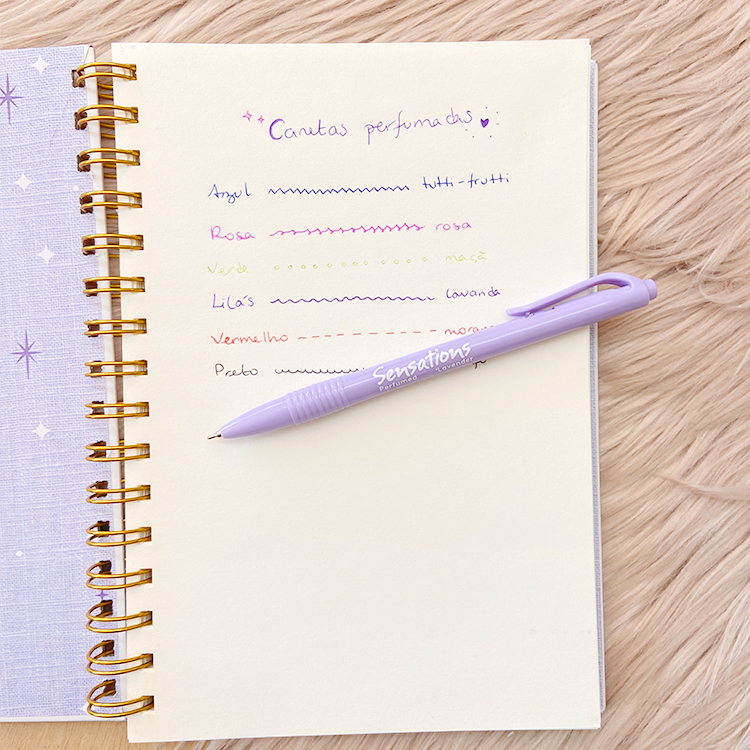 Canetas perfumadas
Azul tutti-frutti
Rosa rosa
Verde maçã
Lilás lavanda
Vermelho
Preto
Sensations
Perfumed Lavender